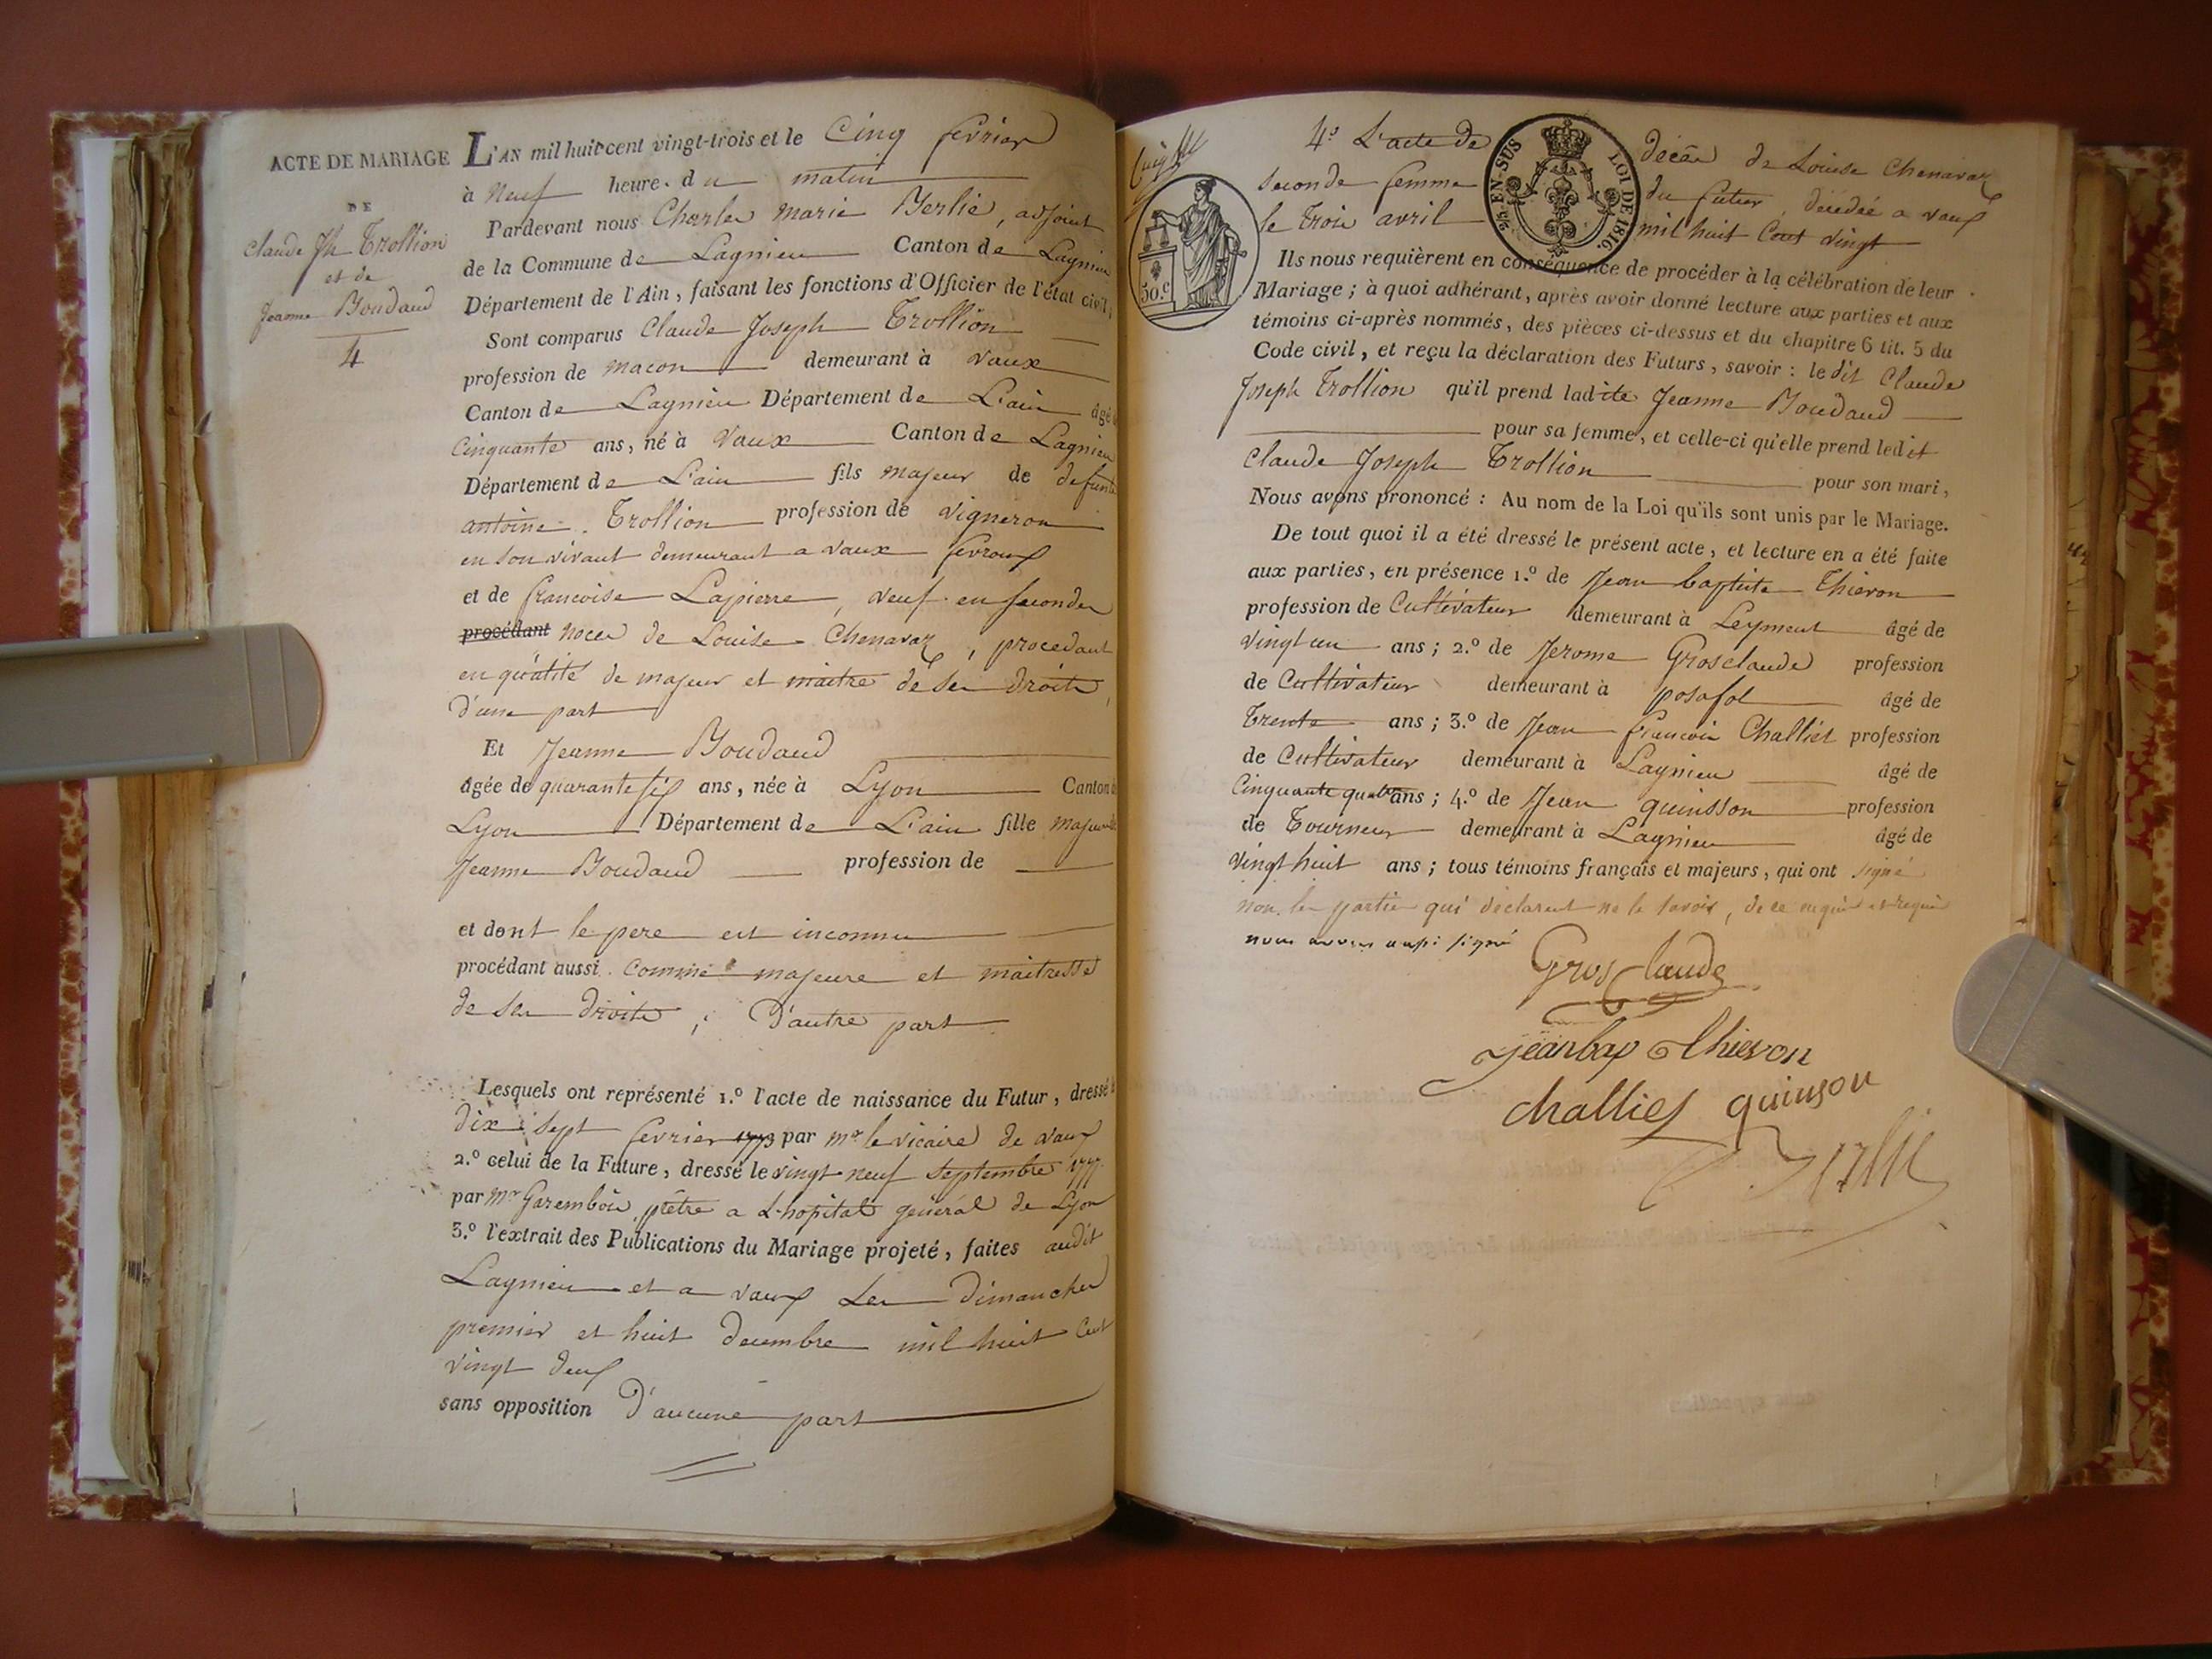 ACTE DE MARIAGE
DE
Claude Jh Trollion
et de
Jeanne Boudaud
4
L'AN mil huit cent vingt-trois et le Cinq fevrier
à neuf heure. du matin
Pardevant nous Charles marie Berlié, adjoint
de la Commune de Lagnieu Canton de Lagnieu
Département de l'Ain, faisant les fonctions d'Officier de l'état civil,
Sont comparus Claude Joseph Trollion
profession de macon demeurant à Vaux
Canton de Lagnieu Département de L'ain âgé
Cinquante ans, né à Vaux Canton de Lagnieu
Département de L'ain fils majeur de defunt
antoine Trollion profession de vigneron
en son vivant demeurant a vaux fevroux
et de francoise Lapierre, veuf en secondes
procédant noces de Louise Chenavaz, procedant
en qualité de majeur et maitre de ses droits,
d'une part
Et Jeanne Boudaud
âgée de quarante six ans, née à Lyon Canton
Lyon Département de L'ain fille majeure
Jeanne Boudaud profession de
et dont le pere est inconnu
procédant aussi comme majeure et maitresse
de ses droits; D'autre part
Lesquels ont représenté 1.º l'acte de naissance du Futur, dressé
dix sept fevrier 1773 par mr le vicaire de vaux
2.º celui de la Future, dressé le vingt neuf septembre 1777
par mr prêtre a L'hopital général de Lyon
3.º l'extrait des Publications du Mariage projeté, faites audit
Lagnieu et a vaux Les Dimanches
premier et huit decembre mil huit Cent
vingt deux
sans opposition D'aucune part
50.c
EN-SUS LOI DE 1816.
4º L'acte de décès de Louise Chenavaz
seconde femme du futur, décédée a vaux
le trois avril mil huit Cent vingt
Ils nous requièrent en conséquence de procéder à la célébration de leur
Mariage; à quoi adhérant, après avoir donné lecture aux parties et aux
témoins ci-après nommés, des pièces ci-dessus et du chapitre 6 tit. 5 du
Code civil, et reçu la déclaration des Futurs, savoir: le dit Claude
Joseph Trollion qu'il prend ladite Jeanne Boudaud
pour sa femme, et celle-ci qu'elle prend ledit
Claude Joseph Trollion pour son mari,
Nous avons prononcé: Au nom de la Loi qu'ils sont unis par le Mariage.
De tout quoi il a été dressé le présent acte, et lecture en a été faite
aux parties, en présence 1.º de Jean baptiste Thievon
profession de Cultivateur demeurant à Leyment âgé de
vingt un ans; 2.º de Jerome Grosclaude profession
de Cultivateur demeurant à posafol âgé de
Trente ans; 3.º de Jean francois Challiet profession
de Cultivateur demeurant à Lagnieu âgé de
Cinquante quatre ans; 4.º de Jean quinsson profession
de Tourneur demeurant à Lagnieu âgé de
vingt huit ans; tous témoins français et majeurs, qui ont signé
non les parties qui déclarent ne le savoir, de ce enquis et requis
nous avons aussi signé
Grosclaude
jeanbap thievon
challies quinson